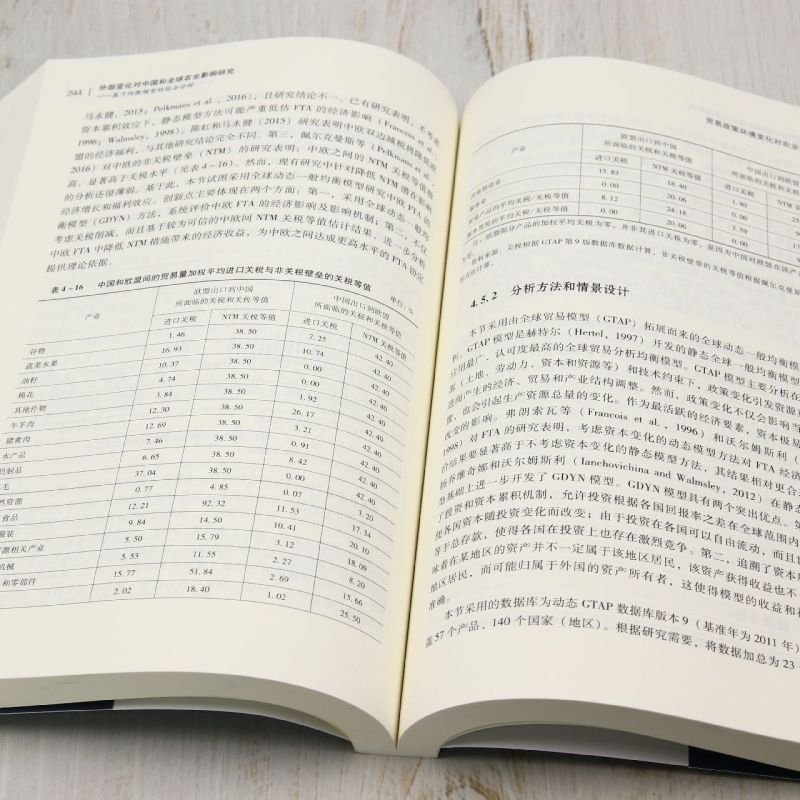 244 外部变化对中国和全球农业影响研究
马永健，2015；Pelkmans et al.，2016），且研究结论不一。已有研究表明，不考虑
资本累积效应下，静态模型方法可能严重低估 FTA 的经济影响（Francois et al.，
1996；Walmsley，1998）。陈虹和马永健（2015）研究表明中欧双边减税将降低欧
盟的经济福利，与其他研究结论完全不同。第三，佩尔克曼斯等（Pelkmans et al.，
2016）对中欧的非关税壁垒（NTM）的研究表明：中欧之间的 NTM 关税等值很
高，显著高于关税水平（见表 4-16）。然而，现有研究中针对降低 NTM 潜在影响
的分析还很薄弱。基于此，本节试图采用全球动态一般均衡模型研究中欧 FTA 的
经济增长和福利效应。创新点主要体现在两个方面：第一，采用全球动态一般均
衡模型（GDYN）方法，系统评价中欧 FTA 的经济影响及影响机制；第二，不仅
考虑关税削减，而且基于较为可信的中欧间 NTM 关税等值估计结果，进一步分析
中欧 FTA 中降低 NTM 措施带来的经济收益，为中欧之间达成更高水平的 FTA 协定
提供理论依据。
表 4-16 中国和欧盟间的贸易量加权平均进口关税与非关税壁垒的关税等值 单位：%
产业 欧盟出口到中国所面临的关税和关税等值 中国出口到欧盟所面临的关税和关税等值
进口关税 NTM 关税等值 进口关税 NTM 关税等值
谷物 1.46 38.50 7.25 42.40
蔬菜水果 16.93 38.50 10.74 42.40
油籽 10.37 38.50 0.00 42.40
棉花 4.74 38.50 0.00 42.40
其他作物 3.84 38.50 1.92 42.40
牛羊肉 12.30 38.50 26.17 42.40
猪禽肉 12.69 38.50 3.21 42.40
水产品 7.46 38.50 0.91 42.40
奶制品 6.65 38.50 8.42 42.40
毛 37.04 38.50 0.00 42.40
然资源 0.77 4.85 0.07 3.20
食品 12.21 92.32 11.53 17.34
服装 9.84 14.50 10.41 20.10
资源相关产业 5.50 15.79 3.12 18.09
机械 5.53 11.55 2.27 8.20
和零部件 15.77 51.84 2.69 15.66
2.02 18.40 1.02 25.50
贸易政策环境变化对农业
产业 欧盟出口到中国所面临的关税和关税等值 中国出口到欧盟所面临的关税和关
进口关税 NTM 关税等值 进口关税 NTM
制造业 15.83 18.40 1.80 25
0.00 20.06 0.00
产品的平均关税/关税等值 8.12 24.18 3.59
贸易的平均关税/关税等值 0.00 20.06 0.00
注：欧盟部分产品的加权平均进口关税为零，并非其进口关税为零，是因为中国对欧盟在该产
资料来源：关税根据 GTAP 第 9 版数据库数据计算，非关税等值根据佩尔克曼斯
方法计算。
4.5.2 分析方法和情景设计
本节采用由全球贸易模型（GTAP）拓展而来的全球动态一般均衡模
析。GTAP 模型是赫特尔（Hertel，1997）开发的静态全球一般均衡模型
应用最广、认可度最高的全球贸易分析均衡模型。GTAP 模型主要分析在
算（土地、劳动力、资本和资源等）和技术约束下，政策变化引发资源
进而产生的经济、贸易和产业结构调整。然而，政策变化不仅会影响当
置，也会引起生产资源总量的变化。作为最活跃的经济要素，资本极易
改变的影响。弗朗索瓦等（Francois et al.，1996）和沃尔姆斯利（
1998）对 FTA 的研究表明，考虑资本变化的动态模型方法对 FTA 经济
价结果要显著高于不考虑资本变化的静态模型方法，其结果相对更合
扬乔维奇娜和沃尔姆斯利（Ianchovichina and Walmsley，2012）在静态
型基础上进一步开发了 GDYN 模型。GDYN 模型具有两个突出优点。第
了投资和资本累积机制，允许投资根据各国回报率之差在全球范围内
使各国资本随投资变化而改变；由于投资在各国可以自由流动，而且
等于总存款，使得各国在投资上也存在激烈竞争。第二，追溯了资本
味着在某地区的资产并不一定属于该地区居民，该资产获得收益也不
地区居民，而可能归属于外国的资产所有者，这使得模型的收益和
准确。
本节采用的数据库为动态 GTAP 数据库版本 9（基准年为 2011 年）
盖 57 个产品、140 个国家（地区）。根据研究需要，将数据加总为 23